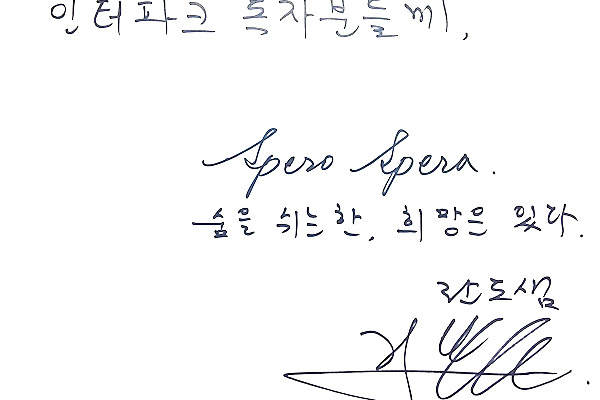 인터파크 독자분들께,
Spero Spera.
숨을 쉬는 한, 희망은 있다.
란도샘